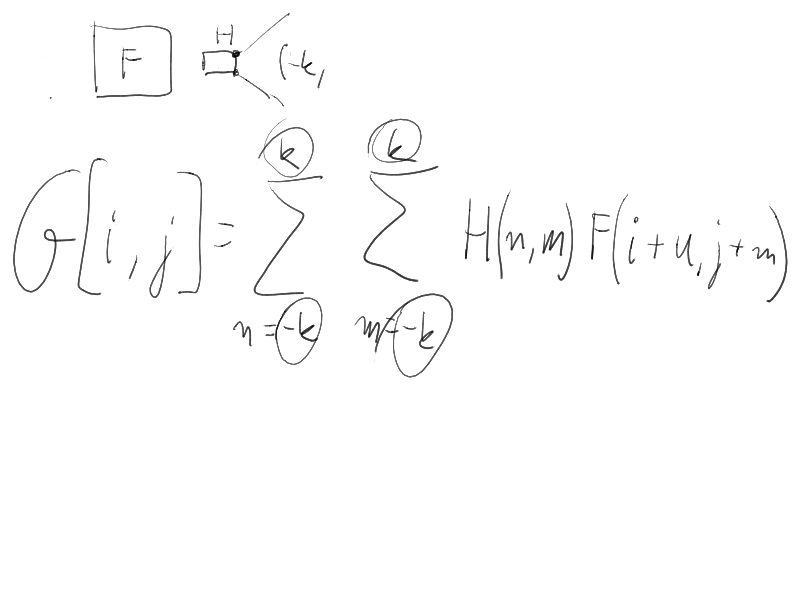 F H (-k,
G[i, j] = \sum_{n=-k}^{k} \sum_{m=-k}^{k} H(n,m) F(i+u, j+m)